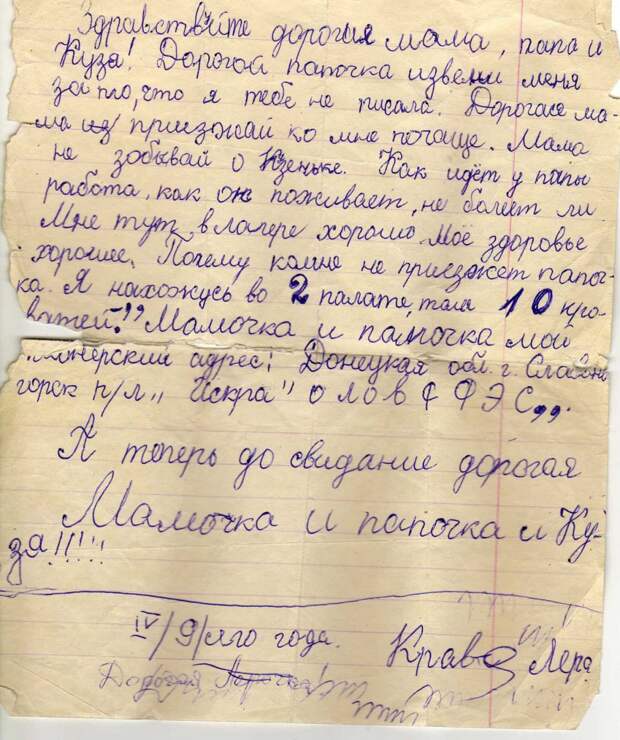 Здравствуйте дорогия мама, папа и
Кузя! Дорогой папочка извени меня
за то, что я тебе не писала. Дорогая ма-
ма из приезжай ко мне почаще. Мама
не зобывай о Кзеньке. Как идёт у папы
работа, как он поживает, не болеет ли.
Мне тут в лагере хорошо. Моё здоровье
хорошее. Почему комне не приезжет папоч-
ка. Я нахожусь во 2 палате, там 10 кро-
ватей!" Мамочка и папочка мой
пионерский адрес: Донецкая обл. г. Славян
горск п/л „Искра"
А теперь до свидание дорогая
Мамочка и папочка и Ку-
зя!!!!!
IV/9/ого года. Крав Лера
Дорогая